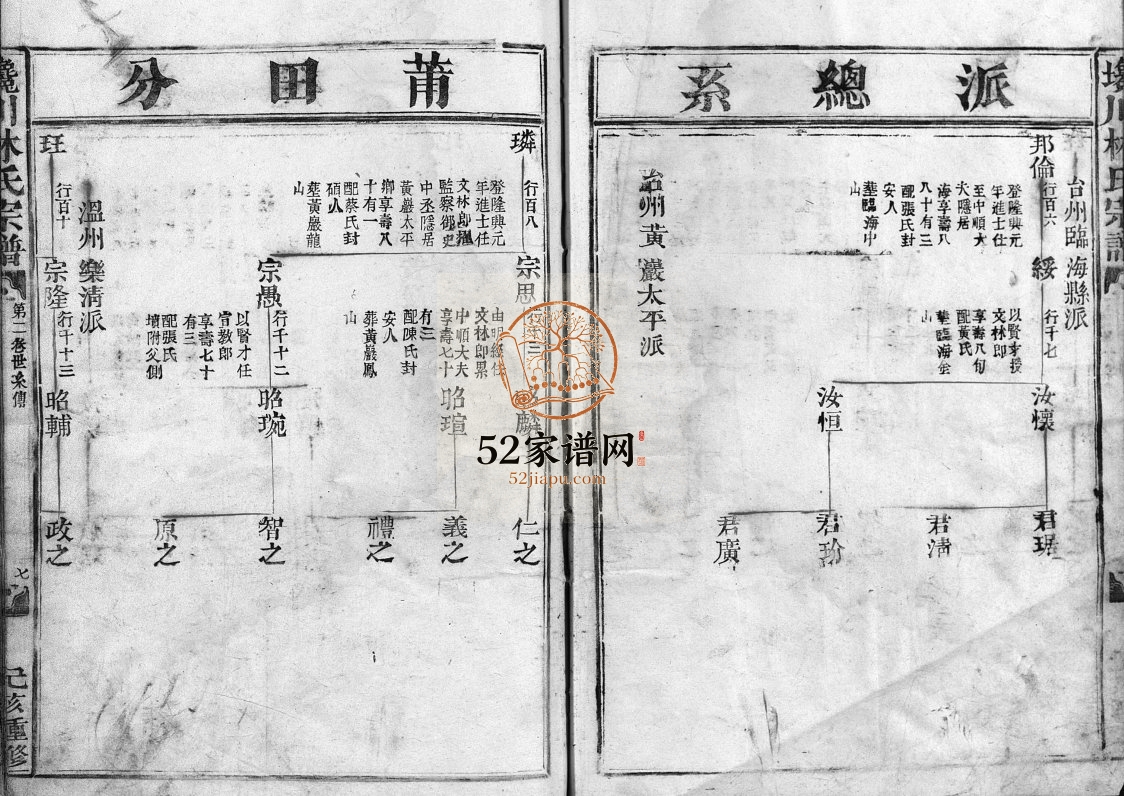 派總系
台州臨海縣派
邦倫
行百六
登隆興元
年進士任
至中順大
夫隱居
海享壽八
八十有三
配張氏封
安人
墓臨海中
山
綏
行千七
以賢才授
文林郎
享壽八旬
配黃氏
墓臨海金
山
汝懷
汝恒
君琚
君清
君玢
君廣
台州黃巖太平派
莆田分
璘
行百八
登隆興元
年進士任
文林郎擢
監察御史
中丞隱居
黃巖太平
鄉享壽八
十有一
配蔡氏封
碩人
墓黃巖龍
山
宗思
由明經任
文林郎累
中順大夫
享壽七十
有三
配陳氏封
安人
葬黃巖鳳
山
宗愚
行千十二
以賢才任
宣教郎
享壽七十
有三
配張氏
墳附父側
昭麟
昭瑄
昭琬
仁之
義之
禮之
智之
原之
溫州樂清派
玨
行百十
宗隆
行千十三
昭輔
政之
林氏宗譜
第一卷世系傳
七
己亥重修
52家谱网
52jiapu.com